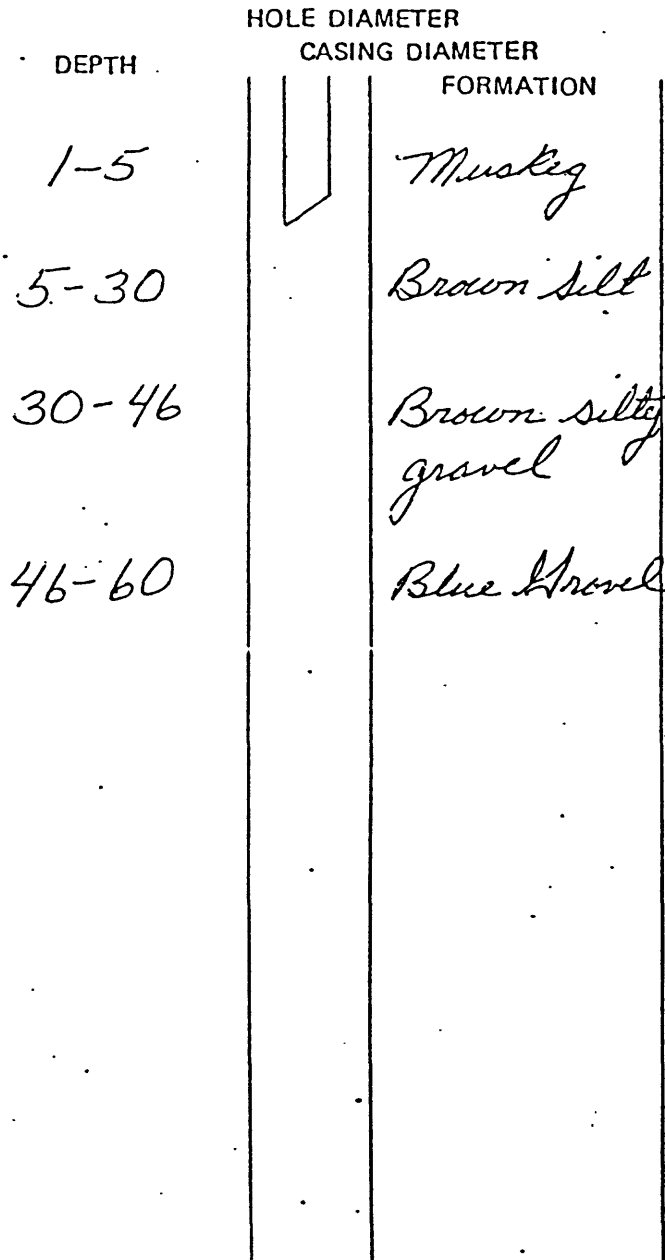 HOLE DIAMETER
CASING DIAMETER
DEPTH
FORMATION
1-5 Muskeg
5-30 Brown Silt
30-46 Brown silty
gravel
46-60 Blue Gravel